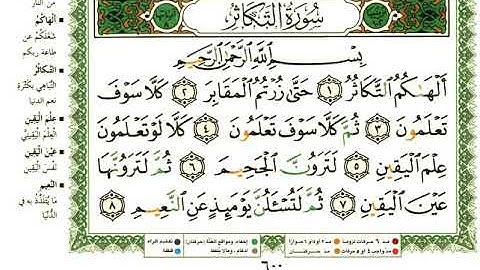 سُورَةُ التَّكَاثُرِ
بِسْمِ اللَّهِ الرَّحْمَٰنِ الرَّحِيمِ
أَلْهَىٰكُمُ التَّكَاثُرُ ١ حَتَّىٰ زُرْتُمُ الْمَقَابِرَ ٢ كَلَّا سَوْفَ
تَعْلَمُونَ ٣ ثُمَّ كَلَّا سَوْفَ تَعْلَمُونَ ٤ كَلَّا لَوْ تَعْلَمُونَ
عِلْمَ الْيَقِينِ ٥ لَتَرَوُنَّ الْجَحِيمَ ٦ ثُمَّ لَتَرَوُنَّهَا
عَيْنَ الْيَقِينِ ٧ ثُمَّ لَتُسْـَٔلُنَّ يَوْمَئِذٍ عَنِ النَّعِيمِ ٨
من النار
أَلْهَاكُمُ
شَغَلَكُمْ عن
طاعة ربكم
التَّكَاثُرُ
التَّبَاهِي بِكَثْرَةِ
نعم الدنيا
عِلْمَ الْيَقِينِ
الْعِلْمَ الْيَقِينِيَّ
عَيْنَ الْيَقِينِ
نَفْسَ الْيَقِينِ
النَّعِيمِ
مَا يُتَلَذَّذُ بِهِ فِي
الدُّنْيَا
٦٠٠